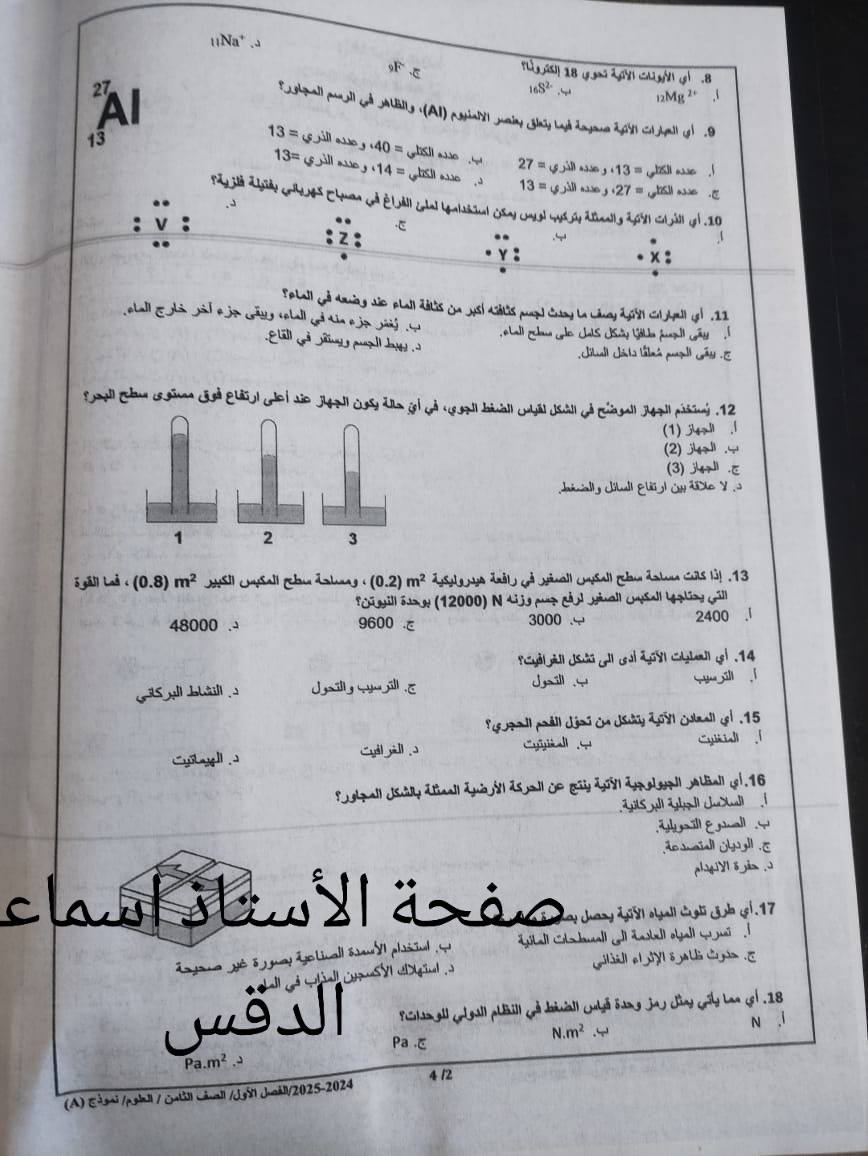 8. أي الأيونات الآتية تحوي 18 إلكترونًا؟
أ. ₁₂Mg²⁺ ب. ₁₆S²⁻ ج. ₉F⁻ د. ₁₁Na⁺
9. أي العبارات الآتية صحيحة فيما يتعلق بعنصر الألمنيوم (Al)، والظاهر في الرسم المجاور؟
27
Al
13
أ. عدده الكتلي = 13، وعدده الذري = 27 ب. عدده الكتلي = 40، وعدده الذري = 13
ج. عدده الكتلي = 27، وعدده الذري = 13 د. عدده الكتلي = 14، وعدده الذري = 13
10. أي الذرات الآتية والممثلة بتركيب لويس يمكن استخدامها لملء الفراغ في مساحة كهربائي بطريقة فاعلة؟
أ. X ب. Y ج. Z د. V
11. أي العبارات الآتية يصف ما يحدث لجسم كثافته أكبر من كثافة الماء عند وضعه في الماء؟
أ. يبقى الجسم طافيًا بشكل كامل على سطح الماء.
ب. يُغمر جزء منه في الماء، ويبقى جزء آخر خارج الماء.
ج. يبقى الجسم معلقًا داخل السائل.
د. يهبط الجسم ويستقر في القاع.
12. يُستخدم الجهاز الموضح في الشكل لقياس الضغط الجوي، في أي حالة يكون الجهاز عند أعلى ارتفاع فوق مستوى سطح البحر؟
أ. الجهاز (1)
ب. الجهاز (2)
ج. الجهاز (3)
د. لا علاقة بين ارتفاع السائل والضغط.
1 2 3
13. إذا كانت مساحة سطح المكبس الصغير في رافعة هيدروليكية m² (0.2)، ومساحة سطح المكبس الكبير m² (0.8)، فما القوة
التي يحتاجها المكبس الصغير لرفع جسم وزنه N (12000) بوحدة النيوتن؟
أ. 2400 ب. 3000 ج. 9600 د. 48000
14. أي العمليات الآتية أدى إلى تشكل الغرافيت؟
أ. الترسيب ب. التحول ج. الترسيب والتحول د. النشاط البركاني
15. أي المعادن الآتية يتشكل من تحلل الفحم الحجري؟
أ. المنغنيت ب. المغنيتيت د. الغرافيت د. الهيماتيت
16. أي المظاهر الجيولوجية الآتية ينتج عن الحركة الأرضية الممثلة بالشكل المجاور؟
أ. السلاسل الجبلية البركانية.
ب. الصدوع التحويلية.
ج. الوديان المتصدعة.
د. حفرة الانهدام
صفحة الأستاذ اسماء
الدقس
17. أي طرق تلوث المياه الآتية يحصل بصورة
أ. تسرب المياه العادمة إلى المسطحات المائية
ب. استخدام الأسمدة الصناعية بصورة غير صحيحة
ج. حدوث ظاهرة الإثراء الغذائي
د. اختلال الأكسجين المذاب في الماء
18. أي مما يأتي يمثل رمز وحدة قياس الضغط في النظام الدولي للوحدات؟
أ. N ب. N.m² ج. Pa د. Pa.m²
4 /2
2025-2024/الفصل الأول/ الصف الثامن / العلوم/ نموذج (A)